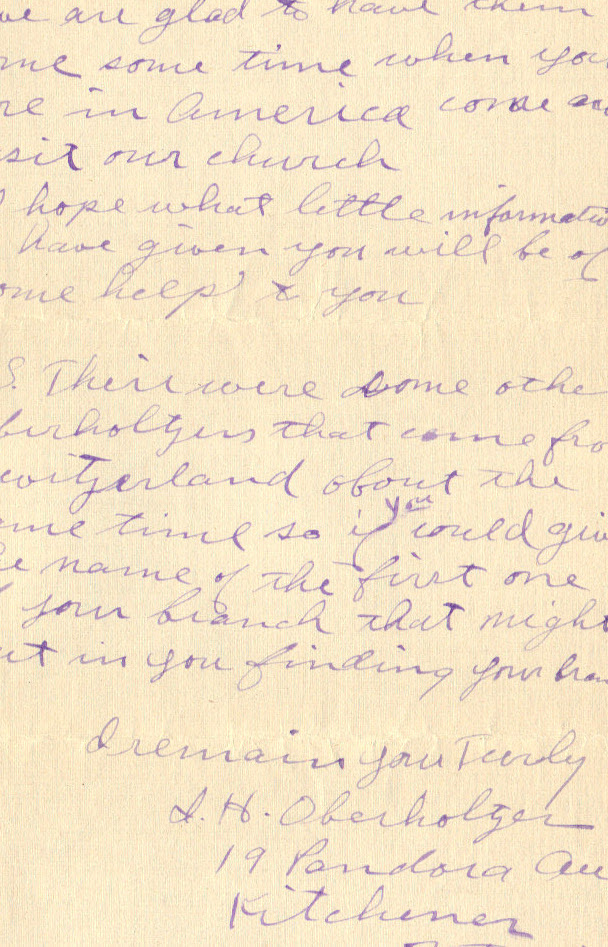 we are glad to have them
me some time when you
re in America come an
sit our church
I hope what little informatio
have given you will be of
ome help to you
S. Their were some othe
berholtzers that come fro
witzerland about the
ame time so if you would giv
he name of the first one
f your branch that might
ut in you finding your bran
I remain your Truly
I. H. Oberholtzer
19 Pandora Av
Kitchener